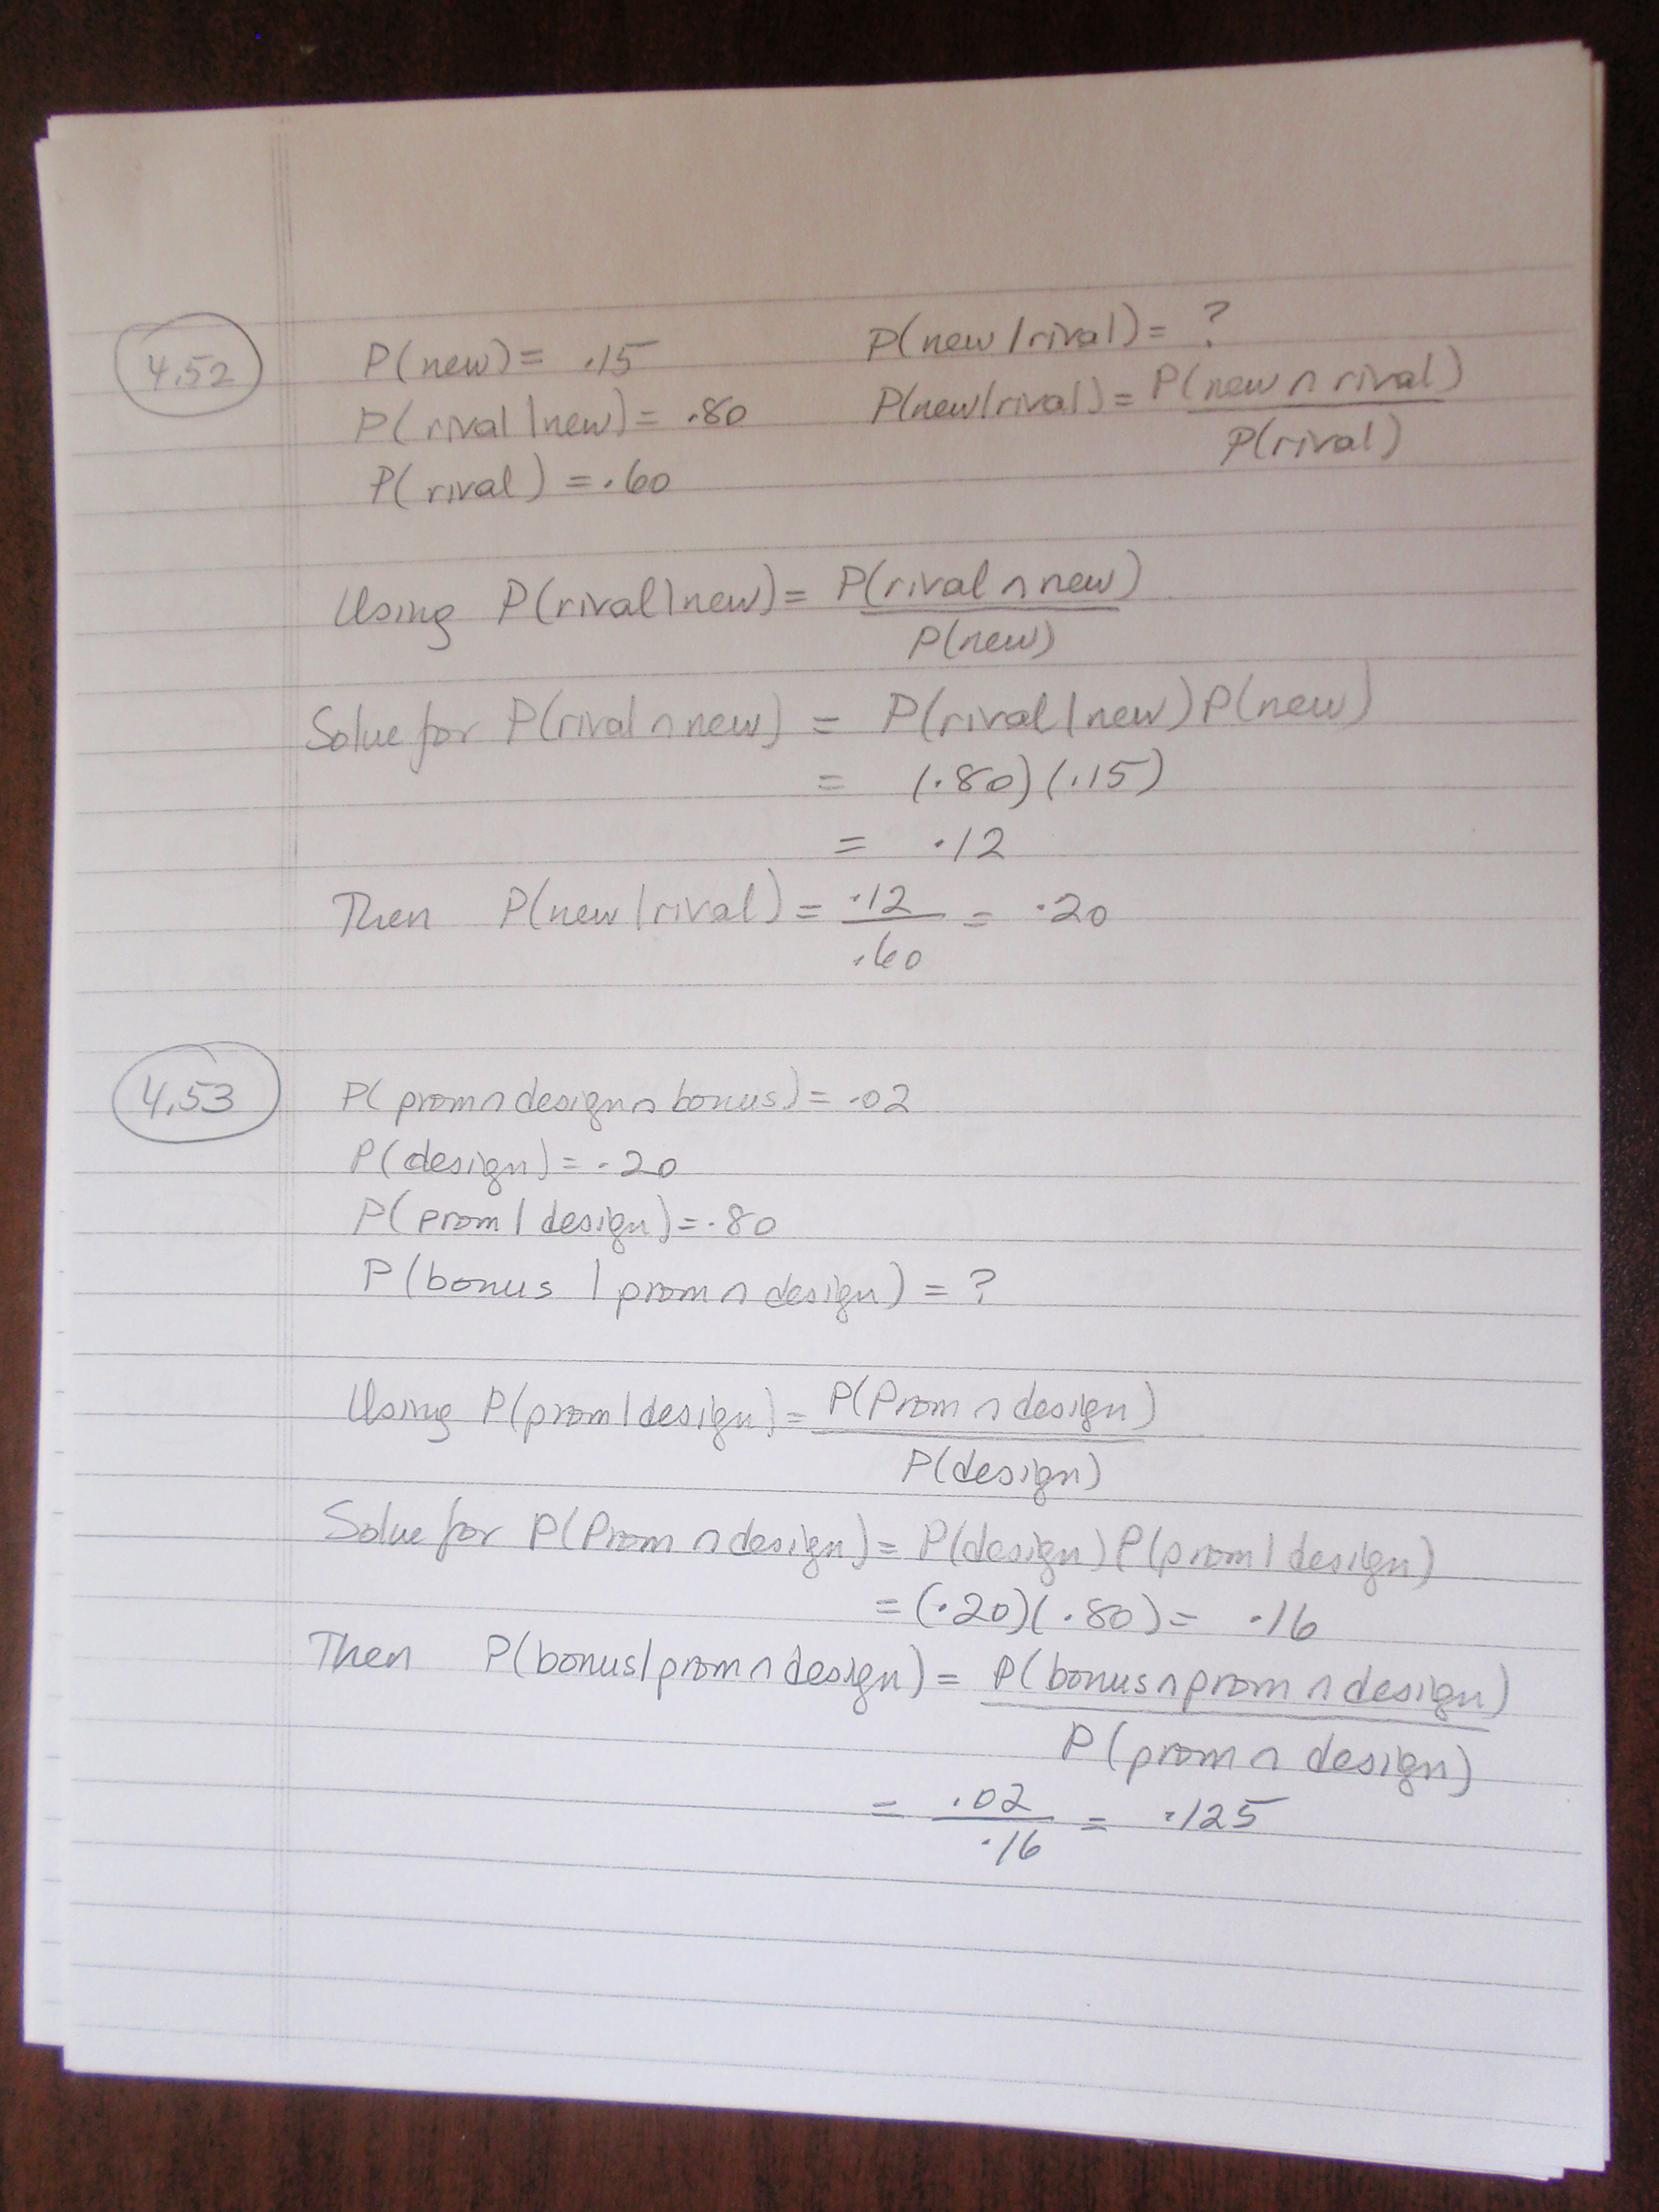 4.52
P(new) = .15
P(new | rival) = ?
P(rival | new) = .80
P(new | rival) = P(new ∩ rival)
P(rival)
P(rival) = .60
Using P(rival | new) = P(rival ∩ new)
P(new)
Solve for P(rival ∩ new) = P(rival | new) P(new)
= (.80)(.15)
= .12
Then P(new | rival) = .12 = .20
.60
4.53
P(prom ∩ design ∩ bonus) = .02
P(design) = .20
P(prom | design) = .80
P(bonus | prom ∩ design) = ?
Using P(prom | design) = P(Prom ∩ design)
P(design)
Solve for P(Prom ∩ design) = P(design) P(prom | design)
= (.20)(.80) = .16
Then P(bonus | prom ∩ design) = P(bonus ∩ prom ∩ design)
P(prom ∩ design)
= .02 = .125
.16